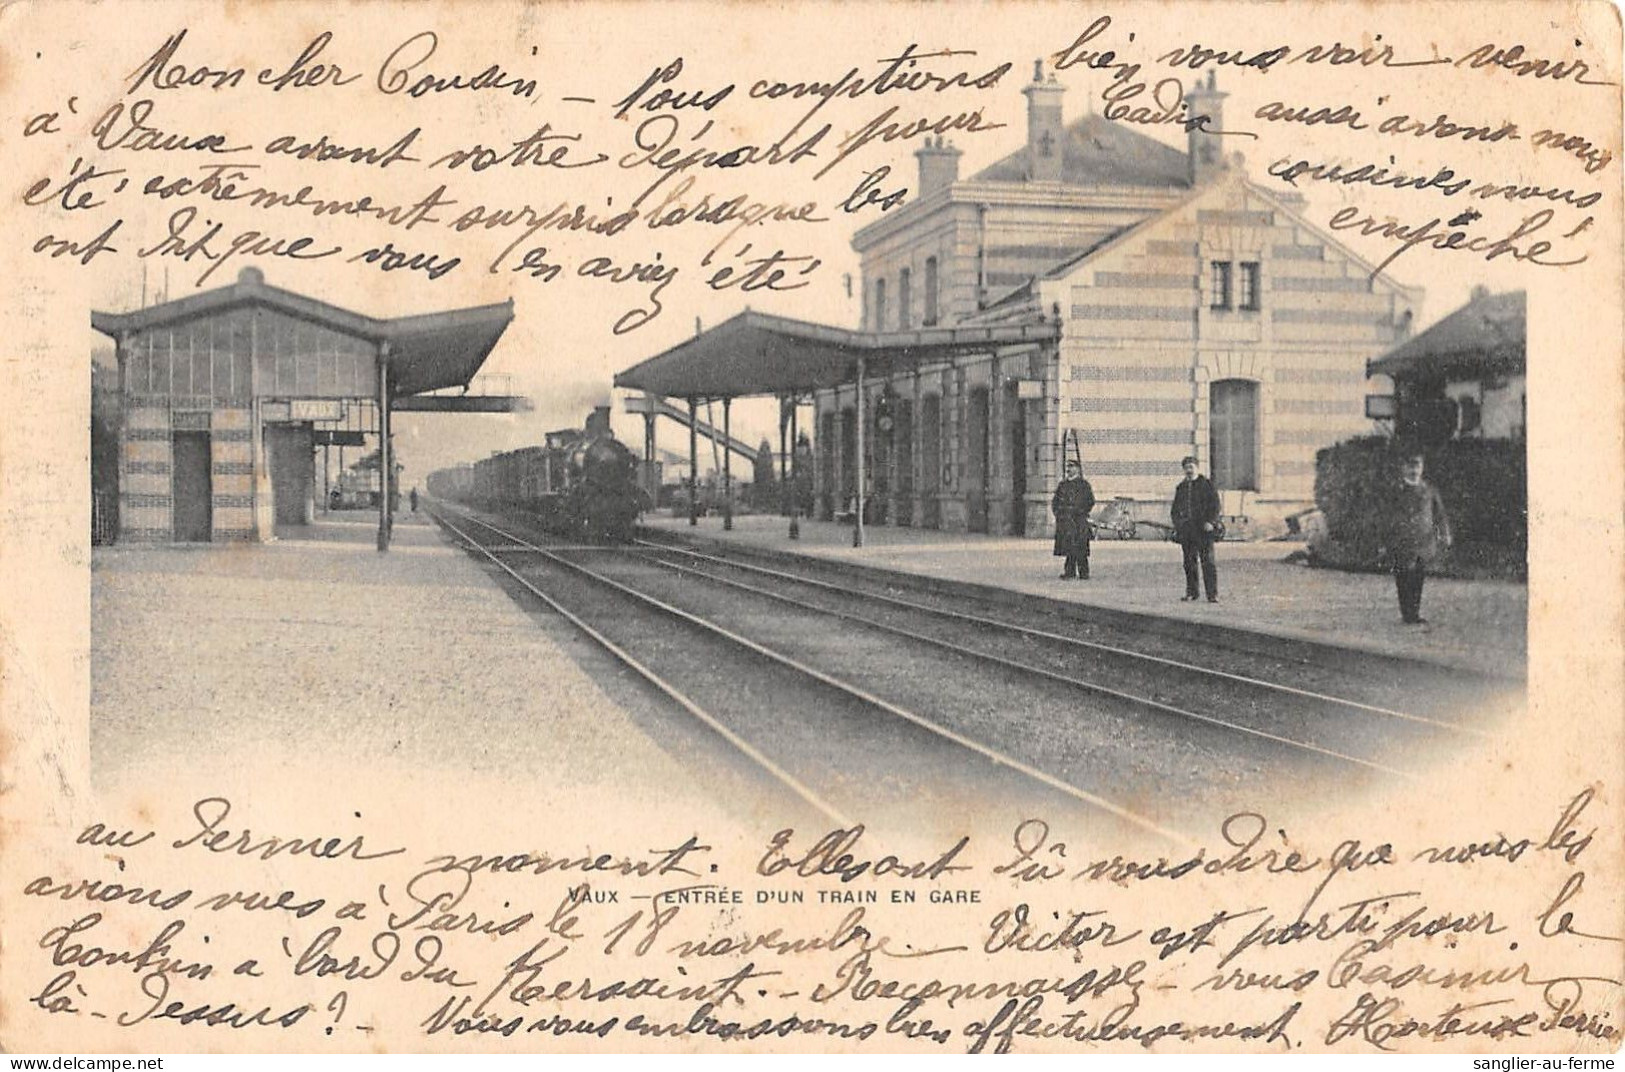 Mon cher Cousin, – Nous comptions bien vous voir venir
à Vaux avant votre départ pour Cadix aussi avons nous
été extrêmement surpris lorsque les cousines nous
ont dit que vous en aviez été empêché
VAUX
au dernier moment. Elles ont dû vous dire que nous les
VAUX — ENTRÉE D'UN TRAIN EN GARE
avions vues à Paris le 18 novembre – Victor est parti pour le
Tonkin à bord du Kersaint. – Reconnaissez-vous Casimir
là-dessus ? – Nous vous embrassons bien affectueusement. Hortense
sanglier-au-ferme